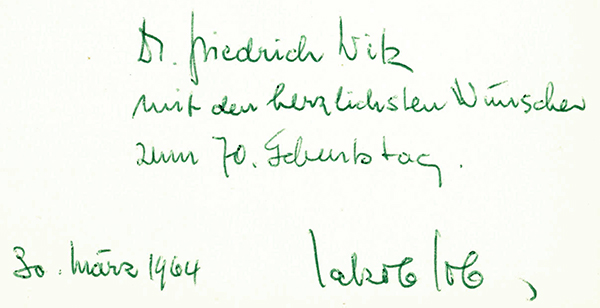 Dr. Friedrich Witz
mit den herzlichsten Wünschen
zum 70. Geburtstag.
30. März 1964 Jakob Job